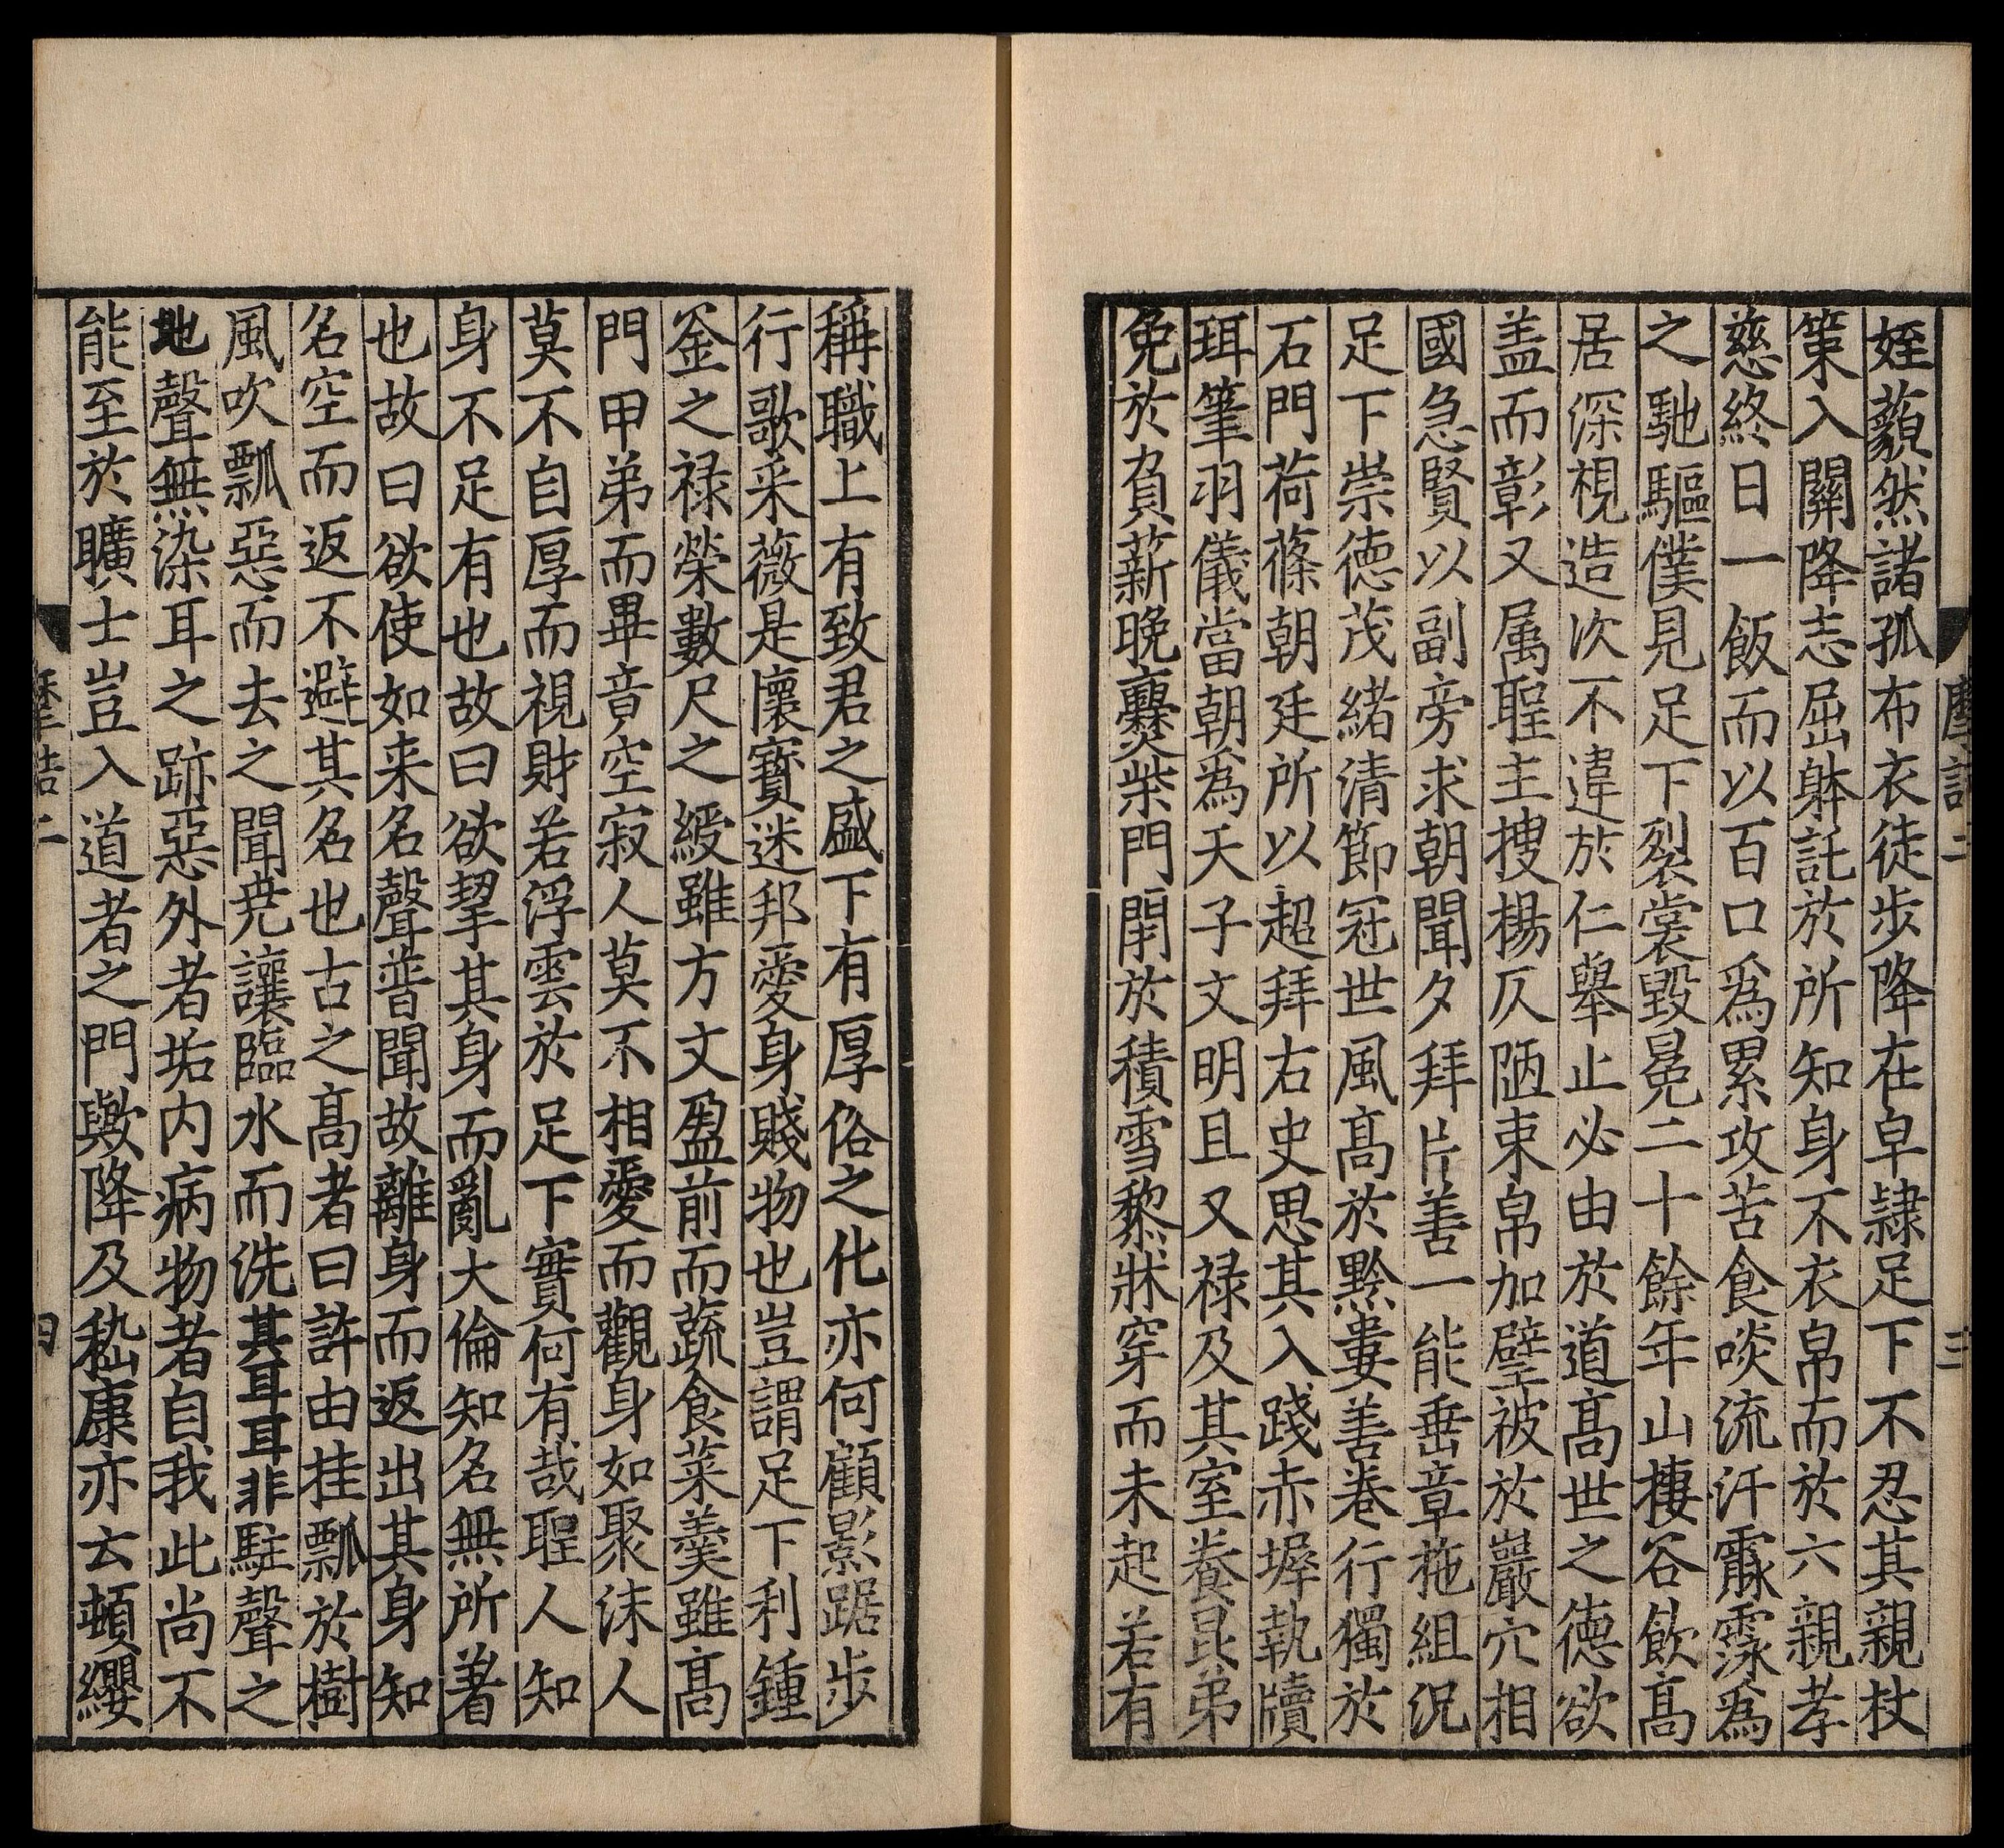 姪藐然諸孤布衣徒步降在皁隷足下不忍其親杖
策入關降志屈躰託於所知身不衣帛而於六親孝
慈終日一飯而以百口爲累攻苦食啖流汗霡霂爲
之馳驅僕見足下裂裳毀冕二十餘年山棲谷飲髙
居深視造次不違於仁舉止必由於道髙世之徳欲
盖而彰又属聖主搜楊仄陋束帛加璧被於巖穴相
國急賢以副旁求朝聞夕拜片善一能垂章拖組況
足下崇徳茂緒清節冠世風髙於黔婁善卷行獨於
石門荷蓧朝廷所以超拜右史思其入踐赤墀執牘
珥筆羽儀當朝爲天子文明且又禄及其室養昆弟
免於負薪晚爨柴門閉於積雪藜牀穿而未起若有
稱職上有致君之盛下有厚俗之化亦何顧影跼步
行歌采薇是懷寳迷邦愛身賤物也豈謂足下利鍾
釜之禄榮數尺之綬雖方丈盈前而蔬食菜羹雖髙
門甲第而畢竟空寂人莫不相愛而觀身如聚沫人
莫不自厚而視財若浮雲於足下實何有哉聖人知
身不足有也故曰欲挈其身而亂大倫知名無所著
也故曰欲使如来名聲普聞故離身而返出其身知
名空而返不避其名也古之髙者曰許由挂瓢於樹
風吹瓢惡而去之聞尭讓臨水而洗其耳耳非駐聲之
地聲無染耳之跡惡外者垢内病物者自我此尚不
能至於曠士豈入道者之門歟降及嵇康亦云頓纓